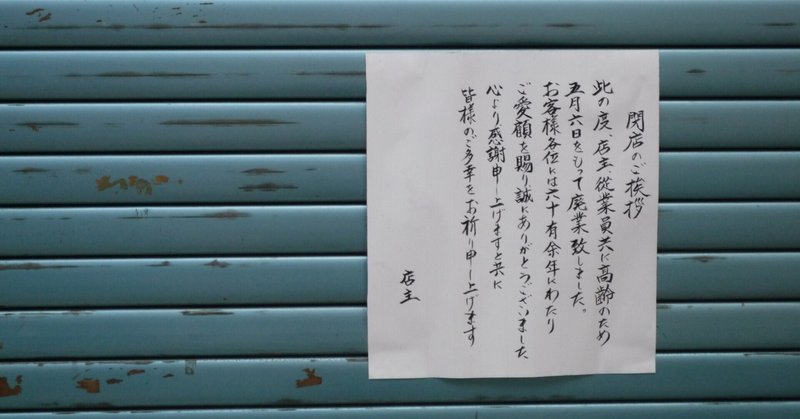 閉店のご挨拶
此の度、店主、従業員共に高齢のため
五月六日をもって廃業致しました。
お客様各位には六十有余年にわたり
ご愛顧を賜り誠にありがとうございました
心より感謝申し上げますと共に
皆様のご多幸をお祈り申し上げます
店主